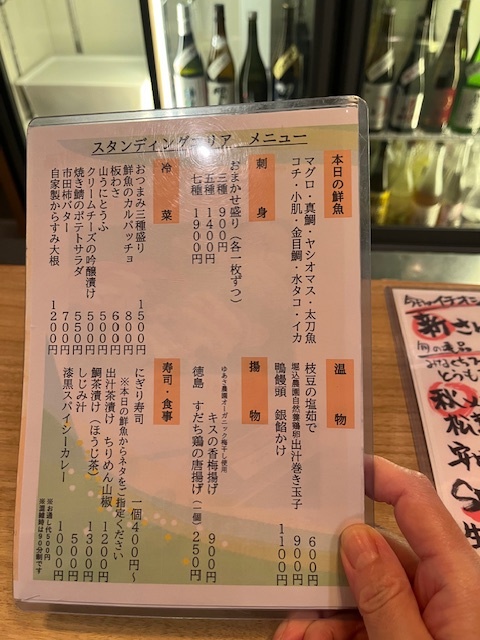 スタンディングエリア メニュー
本日の鮮魚
マグロ・真鯛・ヤシオマス・太刀魚
コチ・小肌・金目鯛・水タコ・イカ
刺身
おまかせ盛り（各一枚ずつ）
三種 900円
五種 1400円
七種 1900円
冷菜
おつまみ三種盛り 1500円
鮮魚のカルパッチョ 800円
板わさ 600円
山うにとうふ 500円
クリームチーズの吟醸漬け 500円
焼き鯖のポテトサラダ 550円
市田柿バター 700円
自家製からすみ大根 1200円
温物
枝豆の塩茹で 600円
堀込農園自然養鶏卵出汁巻き玉子 900円
鴨饅頭 銀餡かけ 1100円
揚物
ゆあさ農園オーガニック梅干し使用
キスの香梅揚げ 900円
徳島 すだち鶏の唐揚げ（二個） 250円
寿司・食事
にぎり寿司 一個400円～
※本日の鮮魚からネタをご指定ください
出汁茶漬け ちりめん山椒 1200円
鯛茶漬け（ほうじ茶） 1300円
しじみ汁 500円
漆黒スパイシーカレー 1000円
※お通し代500円
※混雑時は90分制です
新さん
旬の逸品
秋